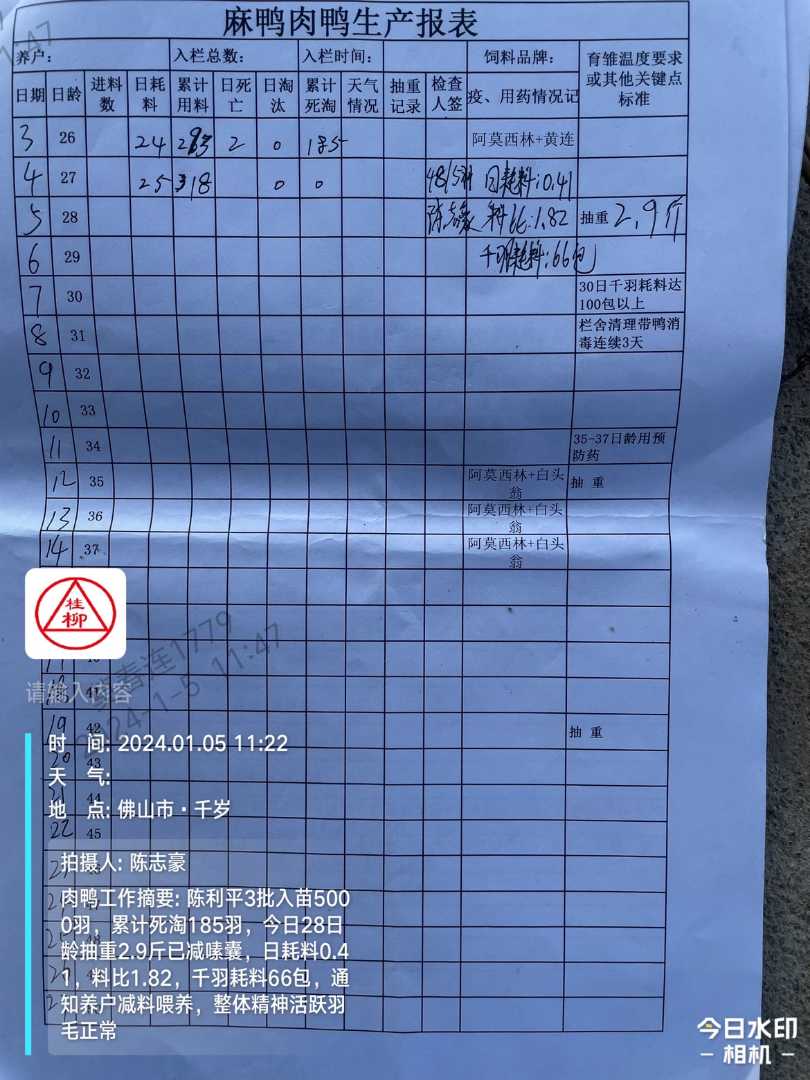 麻鸭肉鸭生产报表
养户： 入栏总数： 入栏时间： 饲料品牌： 育雏温度要求或其他关键点标准
日期 日龄 进料数 日耗料 累计用料 日死亡 日淘汰 累计死淘 天气情况 抽重记录 检查人签 疫、用药情况记
3 26 24 2 0 185 阿莫西林+黄连
4 27 25 318 0 0 4815羽 日耗料:0.41
5 28 陈志豪 料比:1.82 抽重 2.9斤
6 29 千羽耗料:66包
7 30 30日千羽耗料达100包以上
8 31 栏舍清理带鸭消毒连续3天
9 32
10 33
11 34 35-37日龄用预防药
12 35 阿莫西林+白头翁 抽 重
13 36 阿莫西林+白头翁
14 37 阿莫西林+白头翁
桂柳
请输入内容
19 42 抽 重
20 43
44
22 45
11:47
连1779
2024-1-5 11:47
时 间: 2024.01.05 11:22
天 气:
地 点: 佛山市·千岁
拍摄人: 陈志豪
肉鸭工作摘要: 陈利平3批入苗500
0羽，累计死淘185羽，今日28日
龄抽重2.9斤已减嗉囊，日耗料0.4
1，料比1.82，千羽耗料66包，通
知养户减料喂养，整体精神活跃羽
毛正常
今日水印
相机